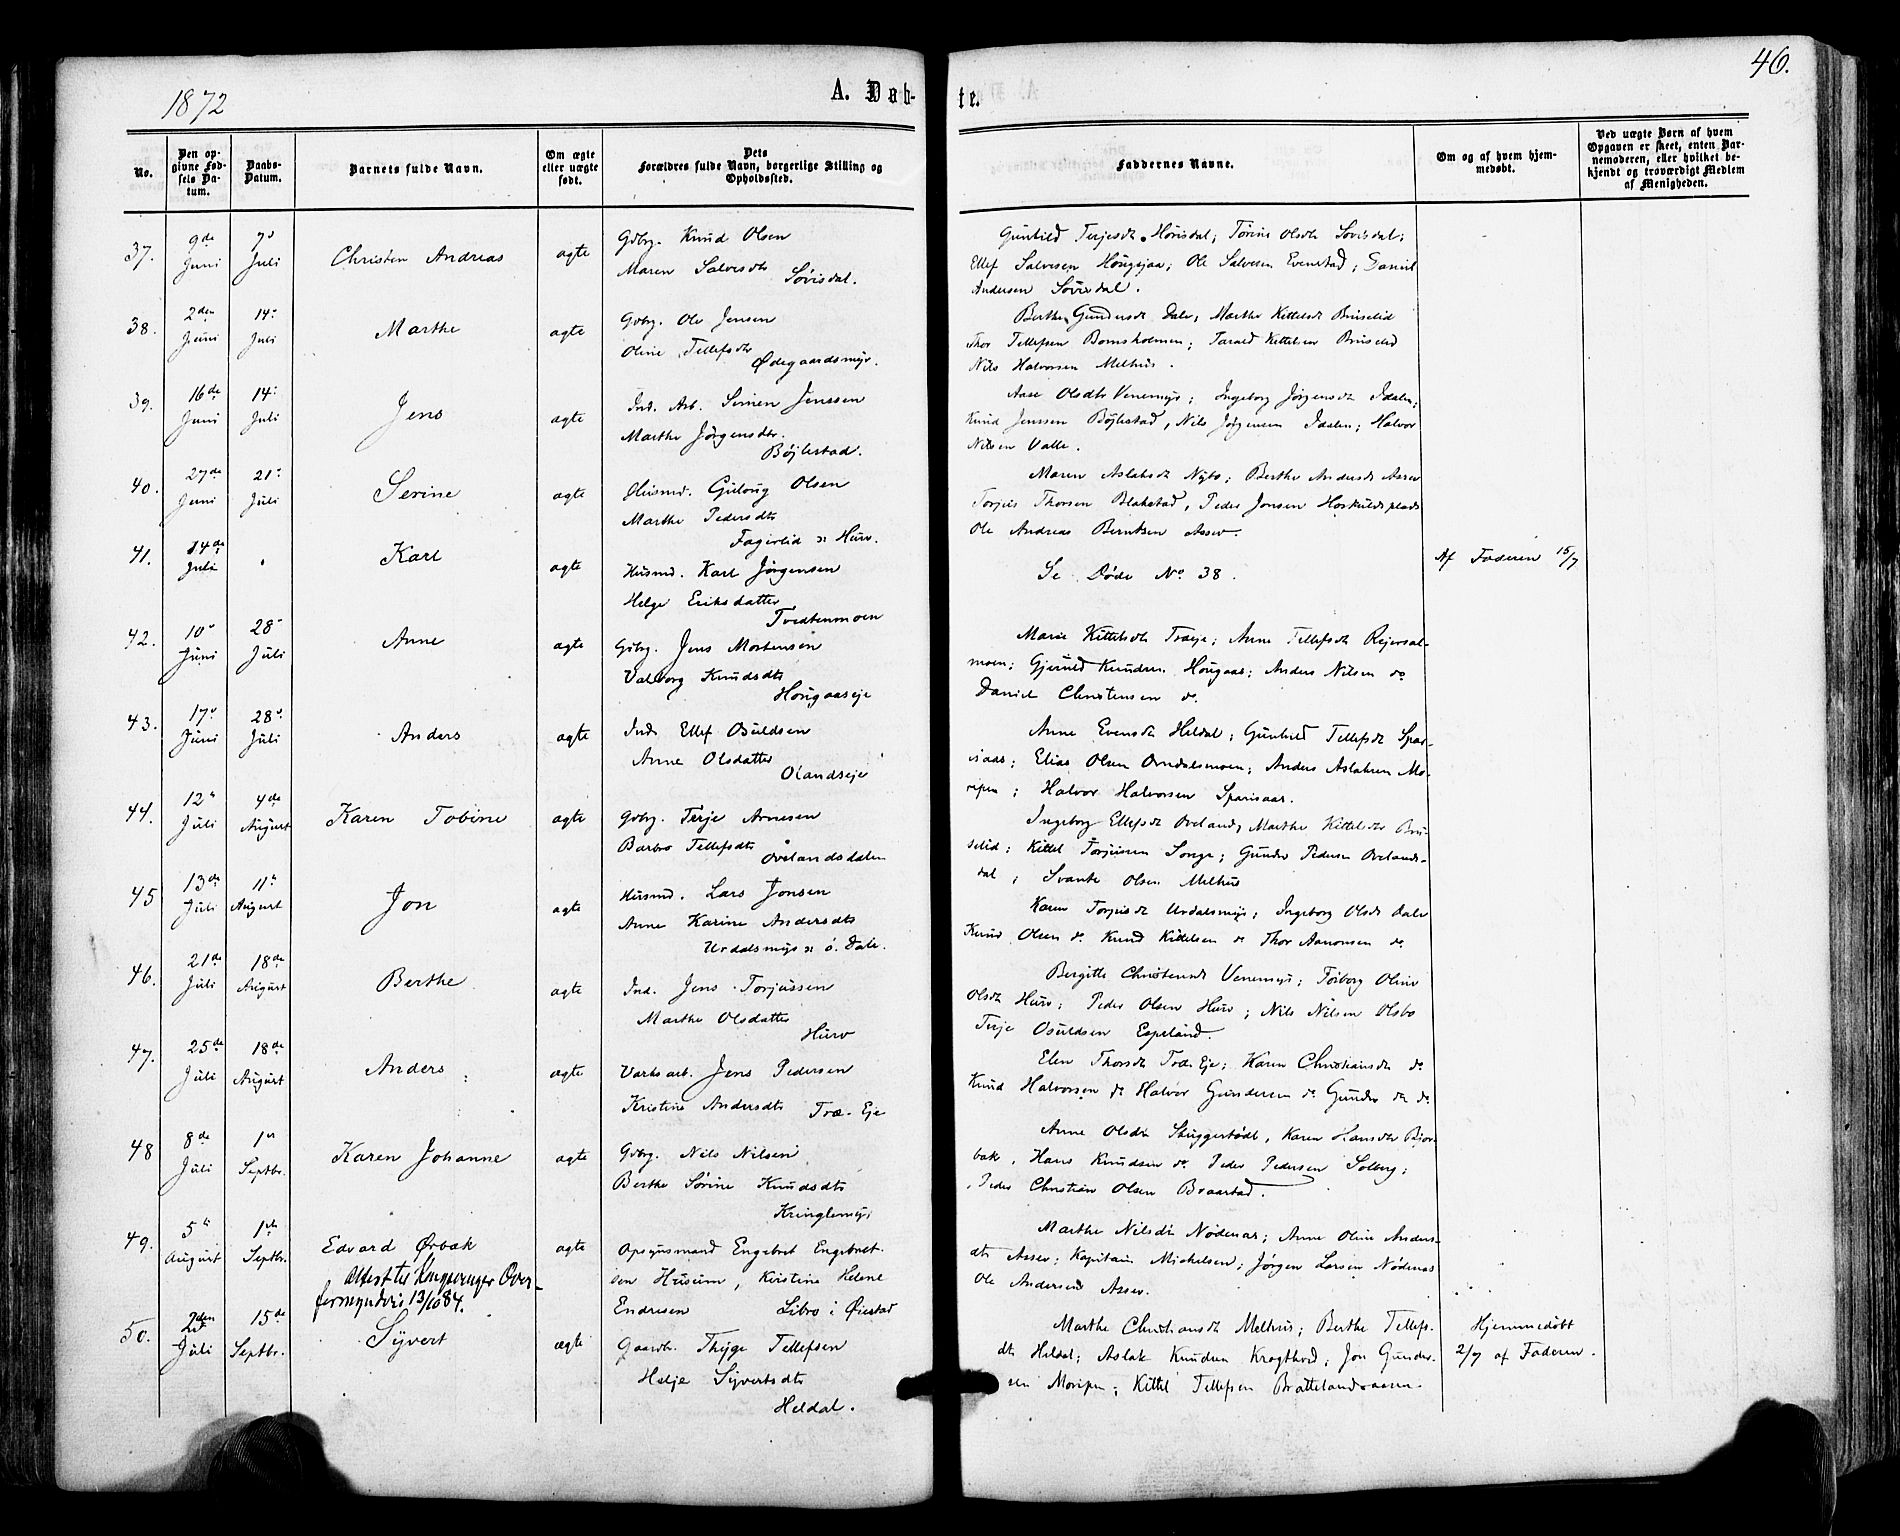 46.
1872
A. Døb-te.
No.
Den op-
givne Fød-
sels Da-
tum.
Daabs-
Datum.
Barnets fulde Navn.
Om ægte
eller uægte
født.
Dets
Forældres fulde Navn, borgerlige Stilling og
Opholdssted.
Faddernes Navne.
Om og af hvem hjem-
medøbt.
Ved uægte Børn af hvem
Opgaven er skeet, enten Bar-
nemoderen, eller hvilket be-
kjendt og troværdigt Medlem
af Menigheden.
37. 9de Juni 7d Juli Christen Andreas ægte
Gdbrg. Knud Olsen
Maren Salvesdtr
Søvisdal.
Gunhild Terjesdt Hørisdal; Tørine Olsdtr Søvisdal;
Ellef Salvesen Hougsjaa; Ole Salvesen Evenstad; Daniel
Andersen Søvisdal.
38. 2den Juni 14d Juli Marthe ægte
Gdbrg. Ole Jensen
Oline Tellefsdtr
Ødegaardsmyr.
Berthe Gundersdt Dale; Marthe Kittelsdt Bruselid
Thor Tellefsen Bomsholmen; Tarald Kittelsen Bruselid
Nils Halvorsen Melhus.
39. 16de Juni 14d Juli Jens ægte
Ind. Arb. Simen Jenssen
Marthe Jørgensdtr.
Bøjlestad.
Aase Olsdtr Venemyr; Ingeborg Jørgensdt Idalen;
Knud Jenssen Bøjlestad, Nils Jørgensen Idalen; Halvor
Nilsen Valle.
40. 27de Juni 21d Juli Serine ægte
Husmd. Guloug Olsen
Marthe Pedersdtr
Fagerlid n: Hurv.
Maren Aslaksdt Nybo; Berthe Andersdt Assev
Torjus Thorsen Blakstad, Peder Jonsen Hoskuldsplads
Ole Andreas Berntsen Assev.
41. 14de Juli Karl ægte
Husmd. Karl Jørgensen
Helge Eriksdatter
Tvedtenmoen
Se Døde No 38.
Af Faderen 15/7
42. 10d Juni 28d Juli Anne ægte
Gdbrg. Jens Mortensen
Valborg Knudsdtr
Hougaaseje
Marie Kittelsdtr Træje; Anne Tellefsdt Rejersal-
moen; Gjeruld Knudsen Hougaas; Anders Nilsen do
Daniel Christensen do
43. 17d Juni 28d Juli Anders ægte
Inds Ellef Osuldsen
Anne Olsdatter
Olandseje
Anne Evensdt Heldal; Gunhild Tellefsdt Spar-
isaas; Elias Olsen Omdalsmoen; Anders Aslaksen Mo-
ripen; Halvor Halvorsen Sparisaas.
44. 12te Juli 4de August Karen Tobine ægte
Gdbrg. Terje Arnesen
Barbro Tellefsdtr
Ovelandsdalen
Ingeborg Ellefsdt Oveland; Marthe Kittelsdtr Bru-
selid; Kittel Torjussen Songe; Gunder Pedersen Ovelands-
dal; Svante Olsen Melhus
45 13de Juli 11te August Jon ægte
Husmd. Lars Jonsen
Anne Karine Andersdtr
Urdalsmyr n: ø. Dale.
Karen Torjusdt Urdalsmyr; Ingeborg Olsdt Dale
Knud Olsen do Knud Kittelsen do Thor Aanonsen do
46. 21de Juli 18de August Berthe ægte
Ind. Jens Torjussen
Marthe Olsdatter
Hurv
Bergitte Christensdt Venemyr; Tobine Oline
Olsdt Hurv; Peder Olsen Hurv; Nils Nilsen Olsbo
Terje Osuldsen Espeland.
47. 25de Juli 18de August Anders ægte
Værksarb. Jens Pedersen
Kristine Andersdtr Træ-Eje
Elen Thorsdt Træ Eje; Karen Christiansdt do
Knud Halvorsen do Halvor Gundersen do Gunder do do
48 8de Juli 1ste Septbr. Karen Johanne ægte
Gdbrg. Nils Nilsen
Berthe Sørine Knudsdtr
Kringlemyr
Anne Olsdtr Skuggestøl, Karen Hansdtr Bior-
bak, Hans Knudsen do Peder Pedersen Solberg;
Peder Christian Olsen Braastad.
49. 5te August 1ste Septbr. Edvard Ørbæk ægte
Attest til Kongsvinger Over-
formynderi 13/10 84.
Opsynsmand Engebret Engebret-
sen Husum, Kirstine Helene
Endresen Libro i Øiestad
Marthe Nilsdtr Nødenæs; Anne Oline Anders-
dtr Assev; Kapitain Michelsen; Jørgen Larsen Nødenæs
Ole Andersen Assev.
50. 2den Juli 15de Septbr. Syvert ægte
Gaardbr. Thyge Tellefsen
Helje Syvertsdtr
Heldal.
Marthe Christiansdt Melhus; Berthe Tellefs-
dtr Heldal; Aslak Knudsen Krogthved; Jon Gunder-
sen Moripen; Kittel Tellefsen Brattelandsaasen.
Hjemmedøbt
2/7 af Faderen.